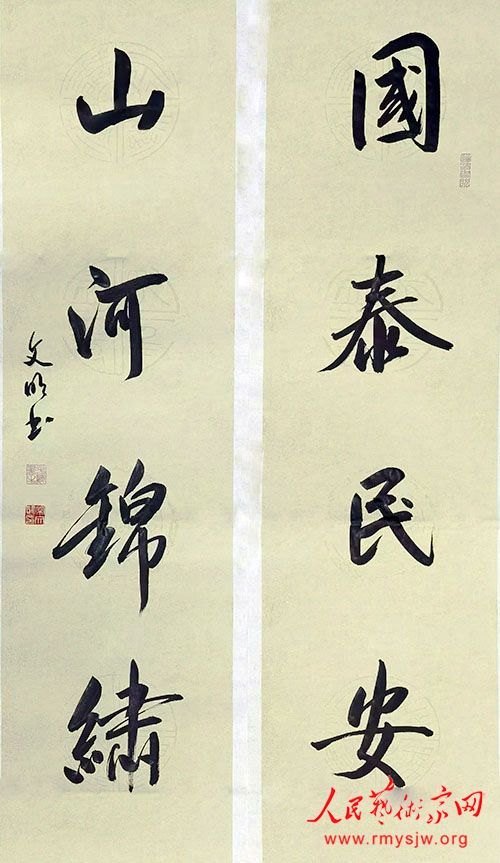 國泰民安
山河錦繡
文明书
人民藝術家网
www.rmysjw.org